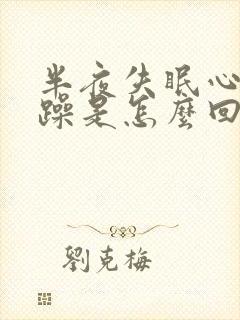 半夜失眠心
躁是怎麼回
劉克梅